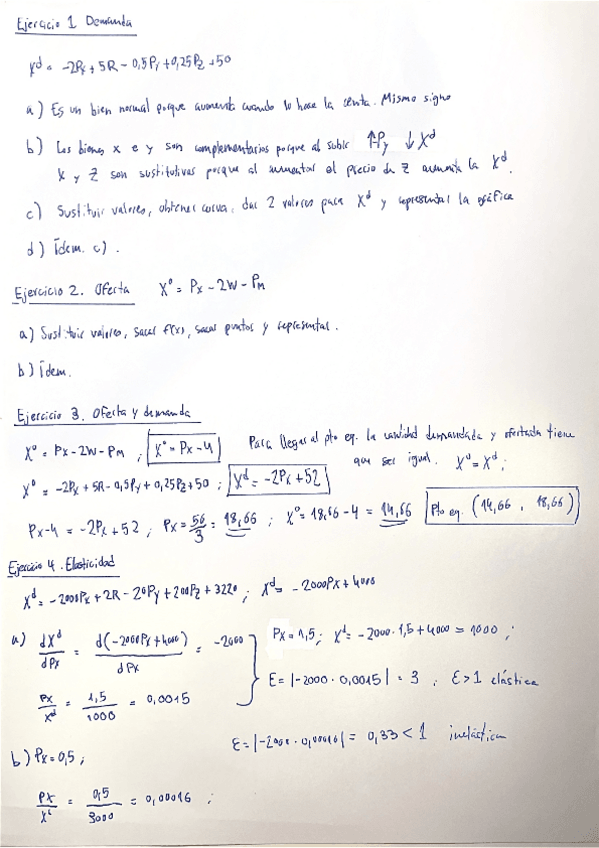 Ejercicio 1 Demanda
Xd = -2Px + 5R - 0,5Py + 0,25Pz + 50
a) Es un bien normal porque aumenta cuando lo hace la renta. Mismo signo
b) Los bienes x e y son complementarios porque al subir ↑Py ↓Xd
X y Z son sustitutivos porque al aumentar el precio de Z aumenta la Xd.
c) Sustituir valores, obtener curva, dar 2 valores para Xd y representar la gráfica
d) Ídem. c).
Ejercicio 2. Oferta Xº = Px - 2W - PM
a) Sustituir valores, sacar f(x), sacar puntos y representar.
b) Ídem.
Ejercicio 3. Oferta y demanda
Xº = Px - 2W - PM ; Xº = Px - 4 Para llegar al pto eq. la cantidad demandada y ofertada tiene
que ser igual. Xº = Xd ;
Xº = -2Px + 5R - 0,5Py + 0,25Pz + 50 ; Xd = -2Px + 52
Px - 4 = -2Px + 52 ; Px = 56/3 = 18,66 ; Xº = 18,66 - 4 = 14,66 Pto eq. (14,66 , 18,66)
Ejercicio 4. Elasticidad
Xd = -2000Px + 2R - 20Py + 200Pz + 3220 ; Xd = -2000Px + 4000
a) dXd/dPx = d(-2000Px + 4000)/dPx = -2000 Px = 1,5 ; Xd = -2000 · 1,5 + 4000 = 1000 ;
Px/Xd = 1,5/1000 = 0,0015 E = |-2000 · 0,0015| = 3 . E > 1 elástica
b) Px = 0,5 ; E = |-2000 · 0,00016| = 0,33 < 1 inelástica
Px/Xd = 0,5/3000 = 0,00016 ;